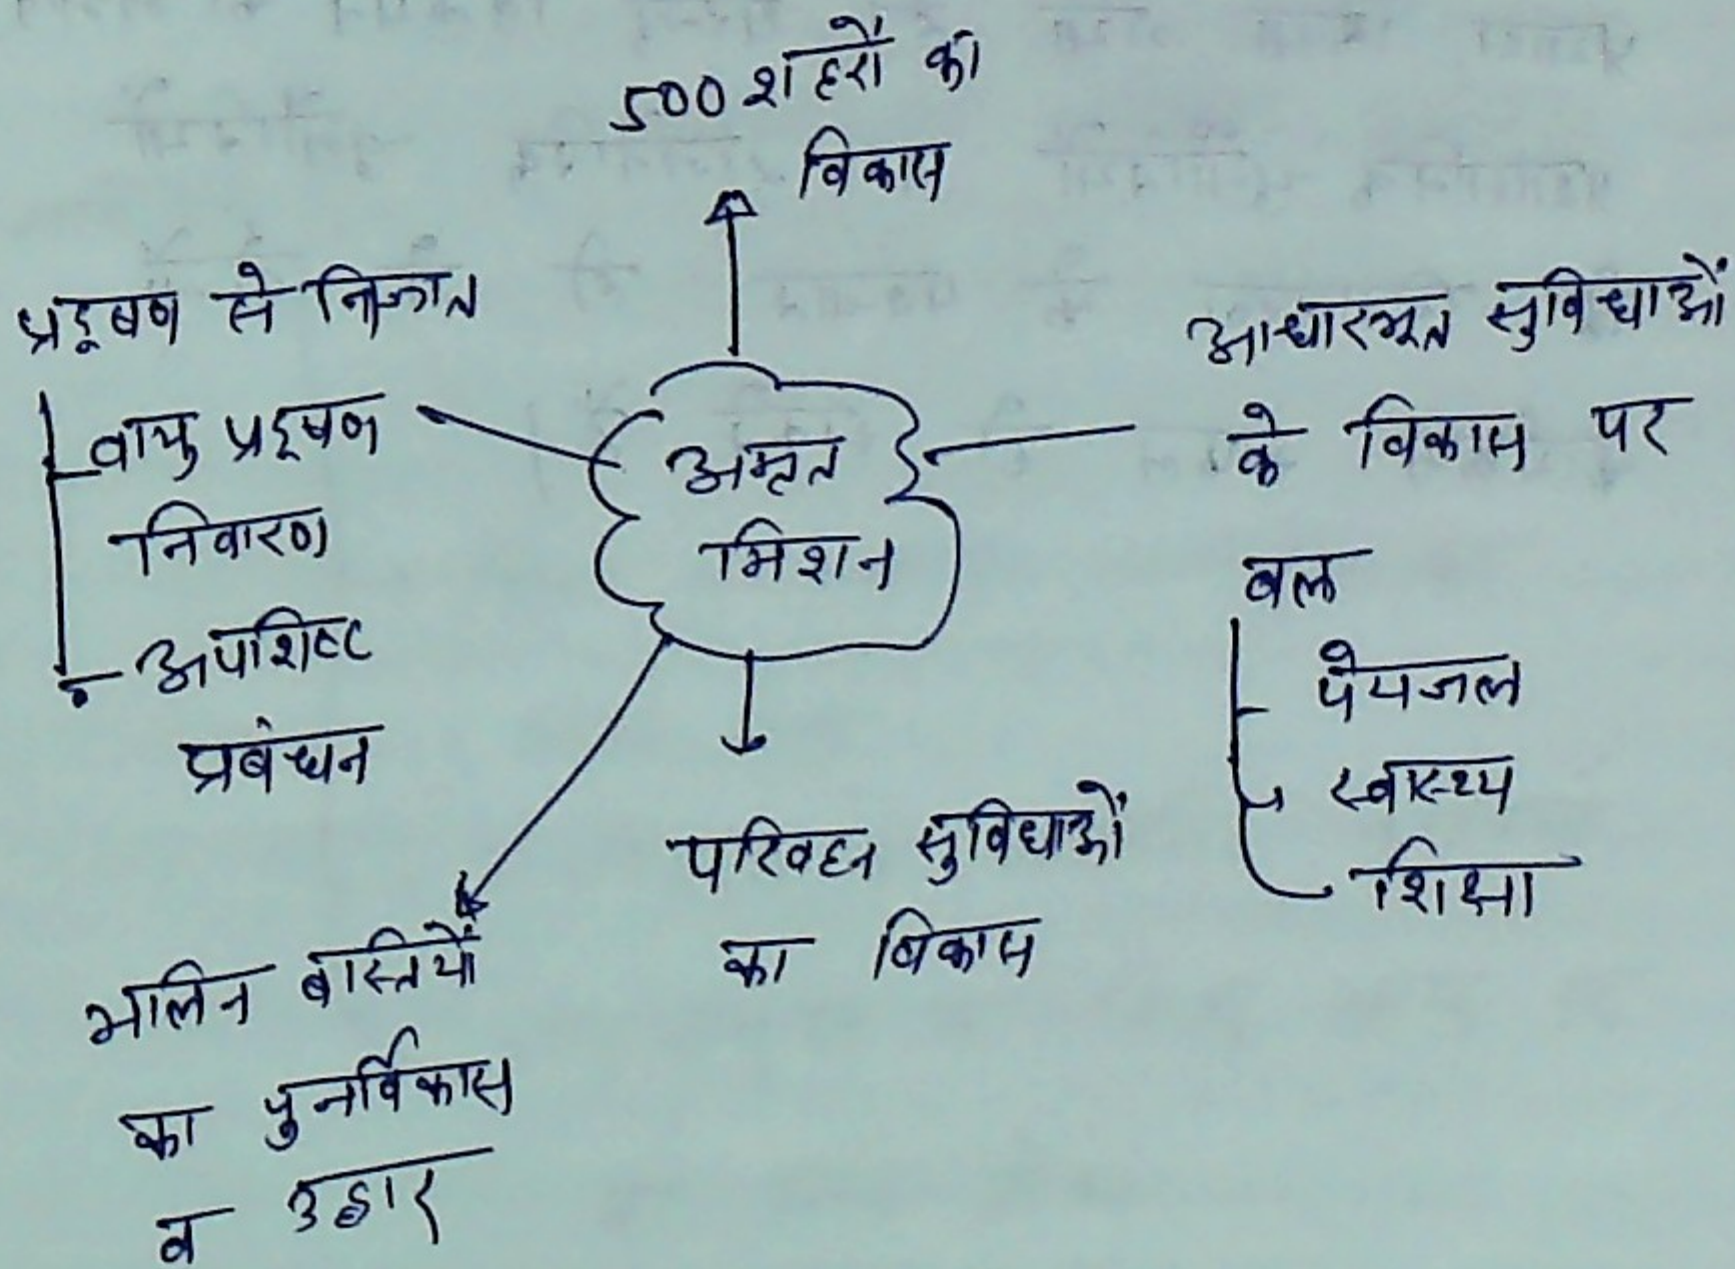 500 शहरों का
विकास
प्रदूषण से निजात
वायु प्रदूषण
निवारण
अपशिष्ट
प्रबंधन
अमृत
मिशन
आधारभूत सुविधाओं
के विकास पर
बल
पेयजल
स्वास्थ्य
शिक्षा
परिवहन सुविधाओं
का विकास
मलिन बस्तियों
का पुनर्विकास
व उद्धार